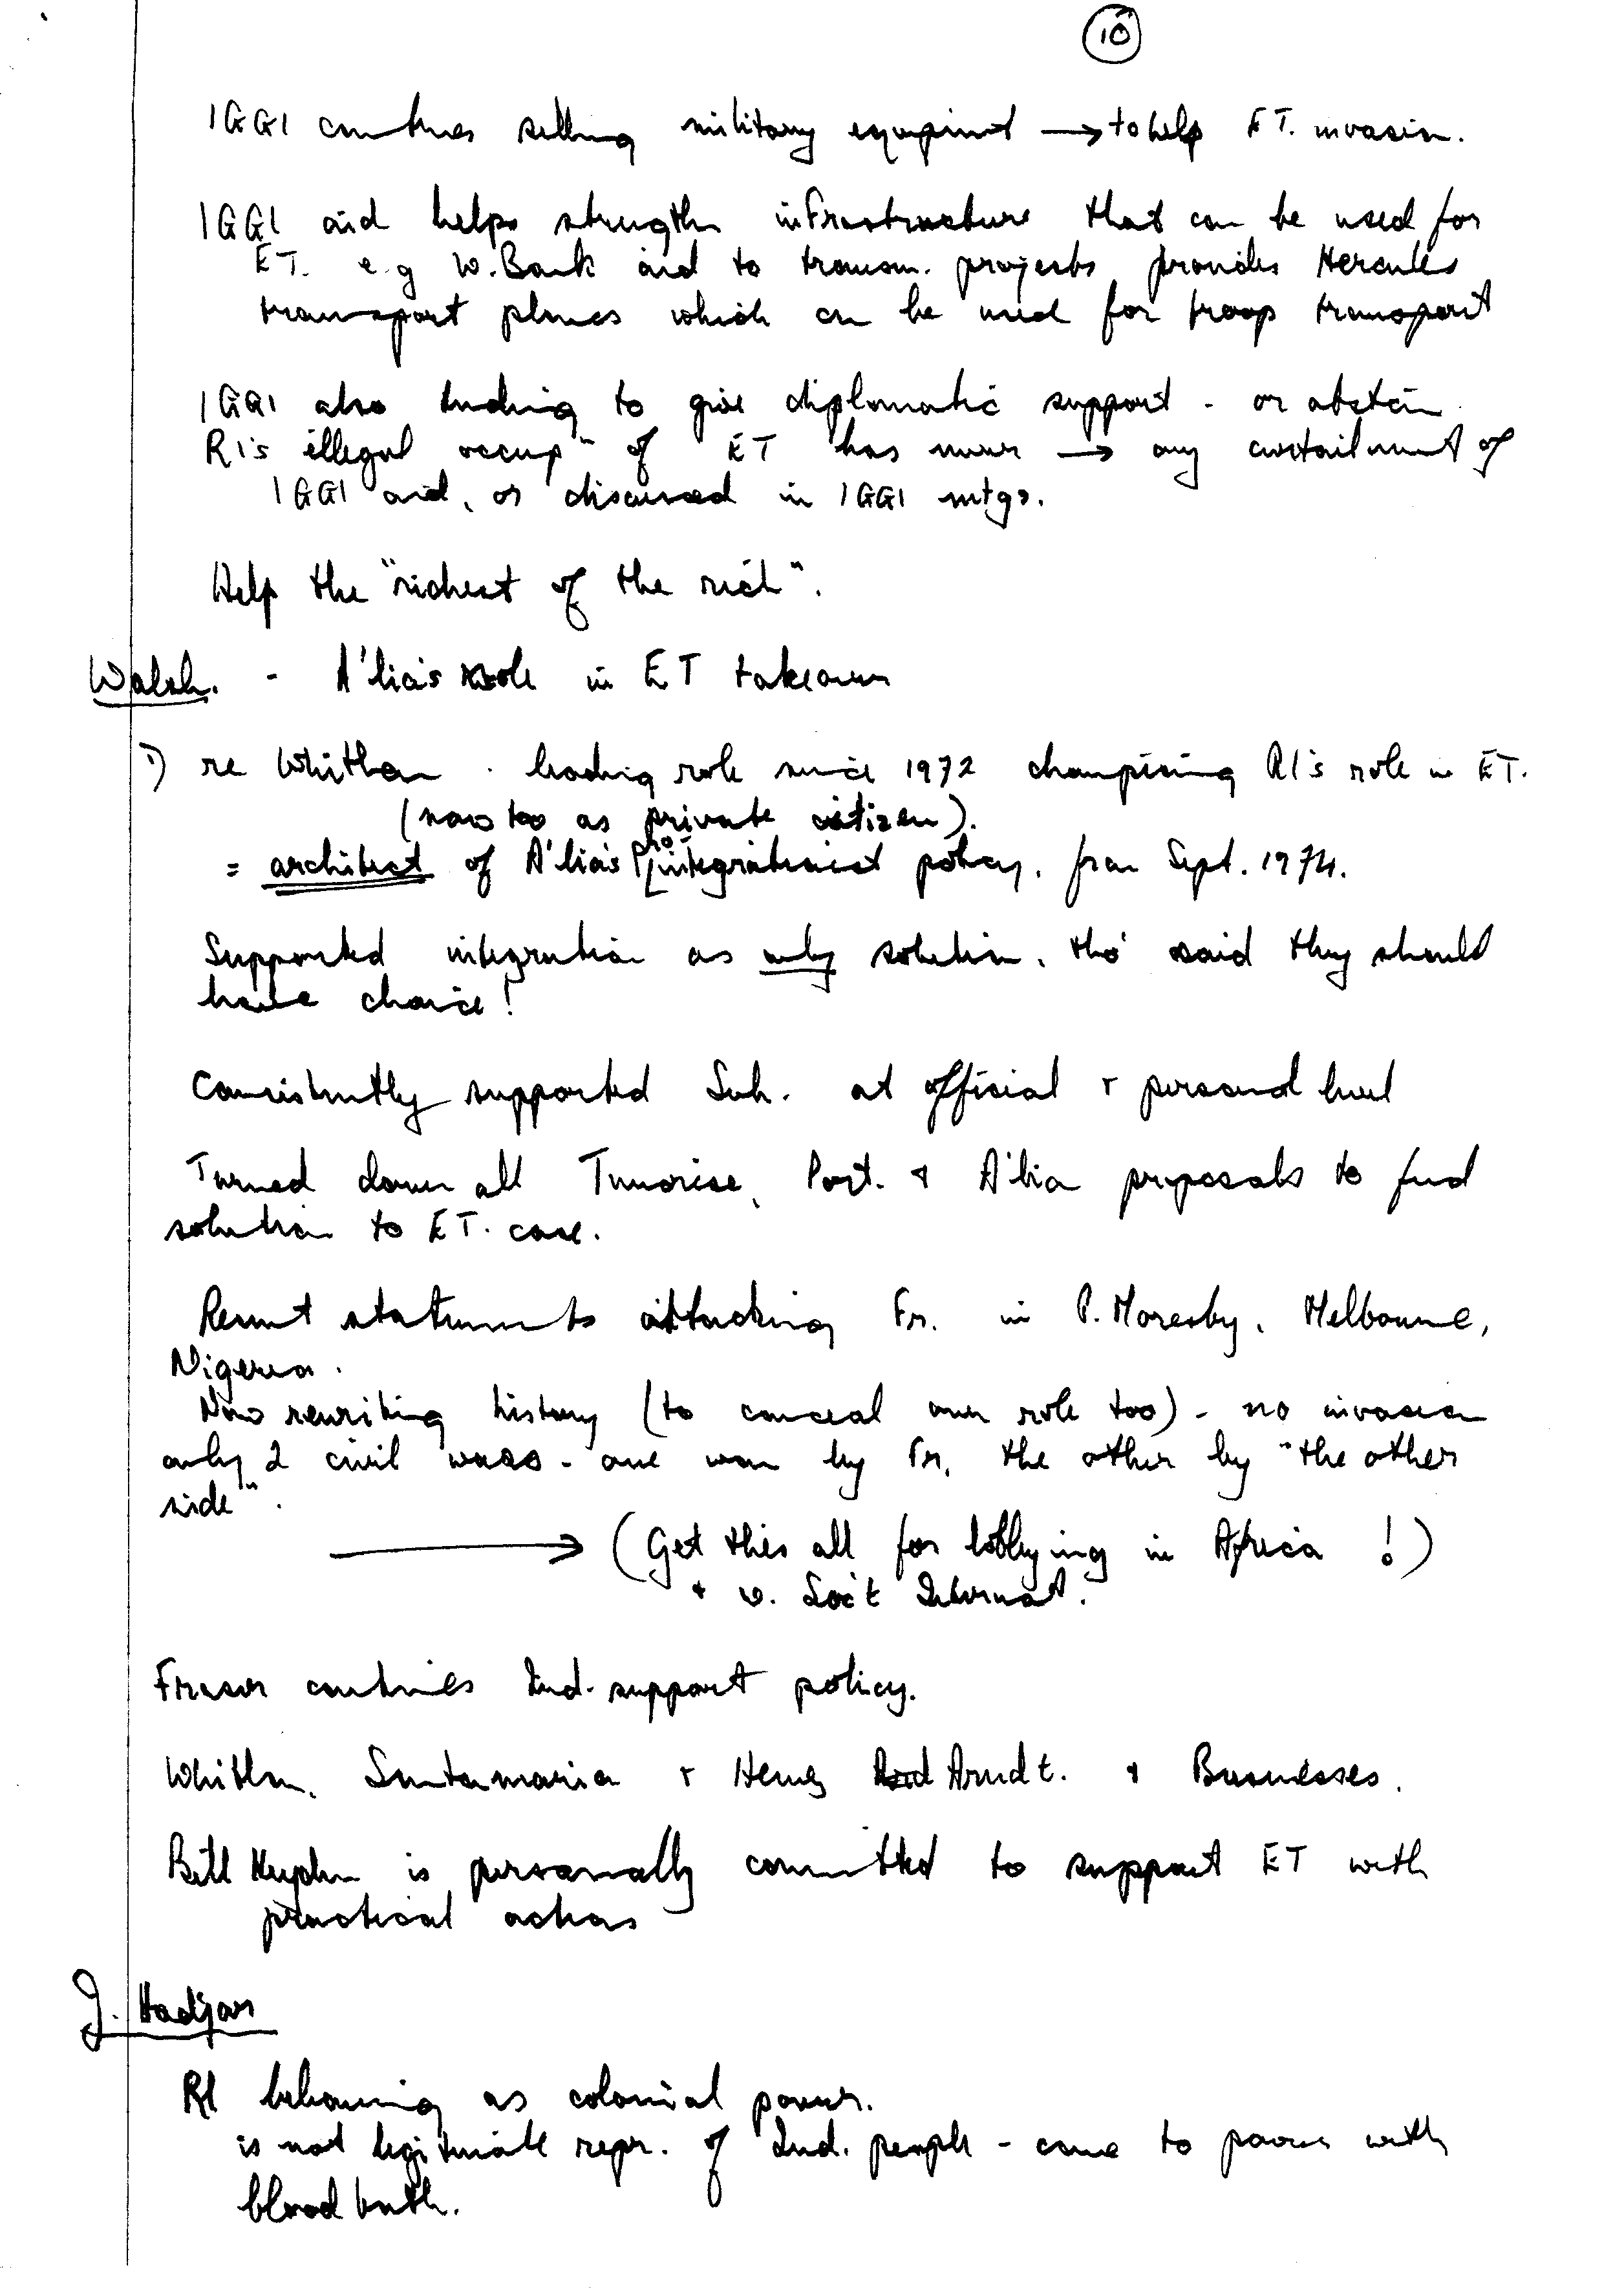 10
IGGI countries selling military equipment → to help ET. invasion.
IGGI aid helps strengthen infrastructure that can be used for
ET. e.g W. Bank aid to transm. projects provides Hercules
transport planes which can be used for troop transport
IGGI also tending to give diplomatic support - or abstain
RI's illegal occupn of ET has never → any curtailment of
IGGI aid, or discussed in IGGI mtgs.
Help the "richest of the rich".
Walsh. - A'lia's role in ET takeover
1) re Whitlam . leading role since 1972 championing RI's role in ET.
(now too as private citizen).
= architect of A'lia's pro-integrationist policy. from Sept. 1974.
Supported integration as only solution. tho' said they should
have choice!
Consistently supported Suh. at official + personal level
Turned down all Timorese, Port. & A'lia proposals to find
solution to ET. case.
Recent statements attacking Fr. in P. Moresby, Melbourne,
Nigeria.
Now rewriting history (to conceal own role too) - no invasion
only 2 civil wars - one won by Fr, the other by "the other
side".
→ (Get this all for lobbying in Africa !)
+ v. Soc't Internat.
Fraser continues Ind. support policy.
Whitlam, Santamaria + Heinz Arndt. & Businesses.
Bill Hayden is personally committed to support ET with
practical actions
J. Hadjar
RI behaving as colonial power.
is not legitimate repr. of Ind. people - came to power with
blood bath.